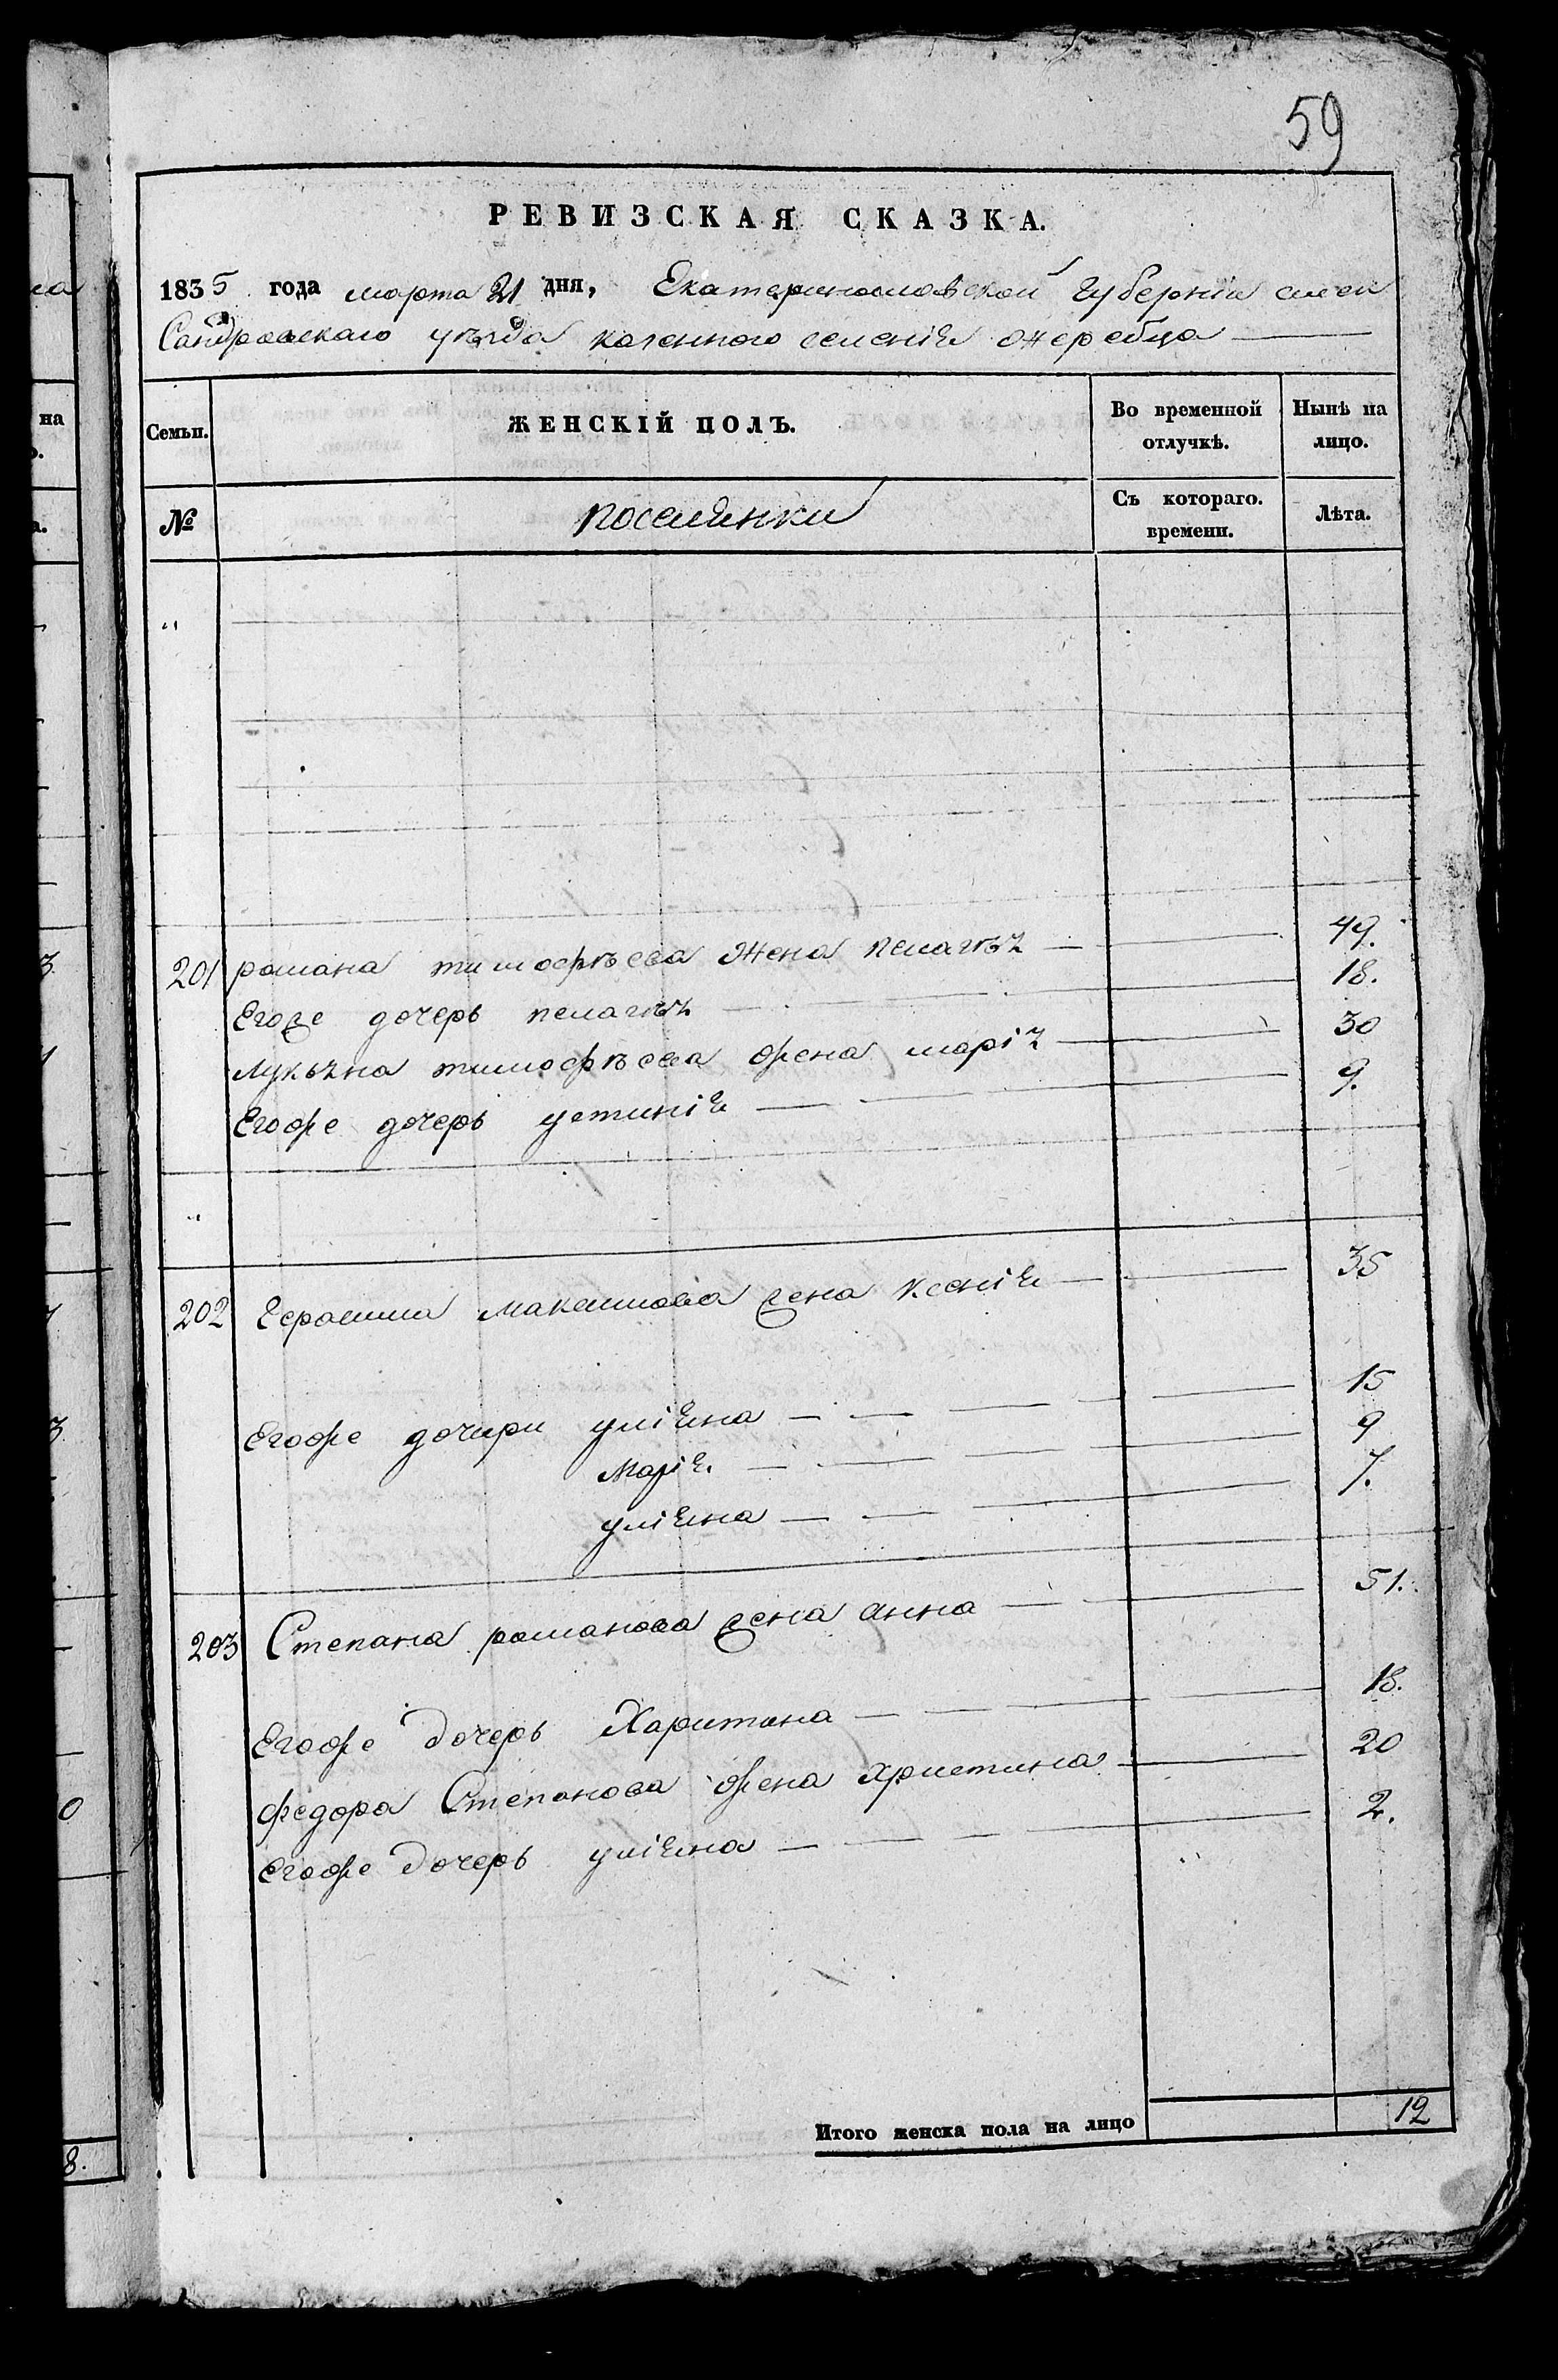 59
РЕВИЗСКАЯ СКАЗКА.
1835 года марта 21 дня, Екатеринославской губерніи алек
Сандровскаго уѣзда казенного селенія Жеребца
Семьи. ЖЕНСКІЙ ПОЛЪ. Во временной отлучкѣ. Нынѣ на лицо.
№ поселянки Съ котораго. времени. Лѣта.
"
201 романа тимофѣева Жена пелагѣя 49.
Егоже дочерь пелагѣя 18.
Лукяна тимофѣева жена марія 30
Егоже дочерь устинія 9.
"
202 Герасима Максимова жена ксенія 35
Егоже дочири уліяна 15
Марія 9
уліяна 7.
203 Степана романова жена анна 51.
Егоже дочерь Харитина 18.
федора Степанова жена христина 20
Егоже дочерь уліяна 2.
Итого женска пола на лицо 12
на
8.